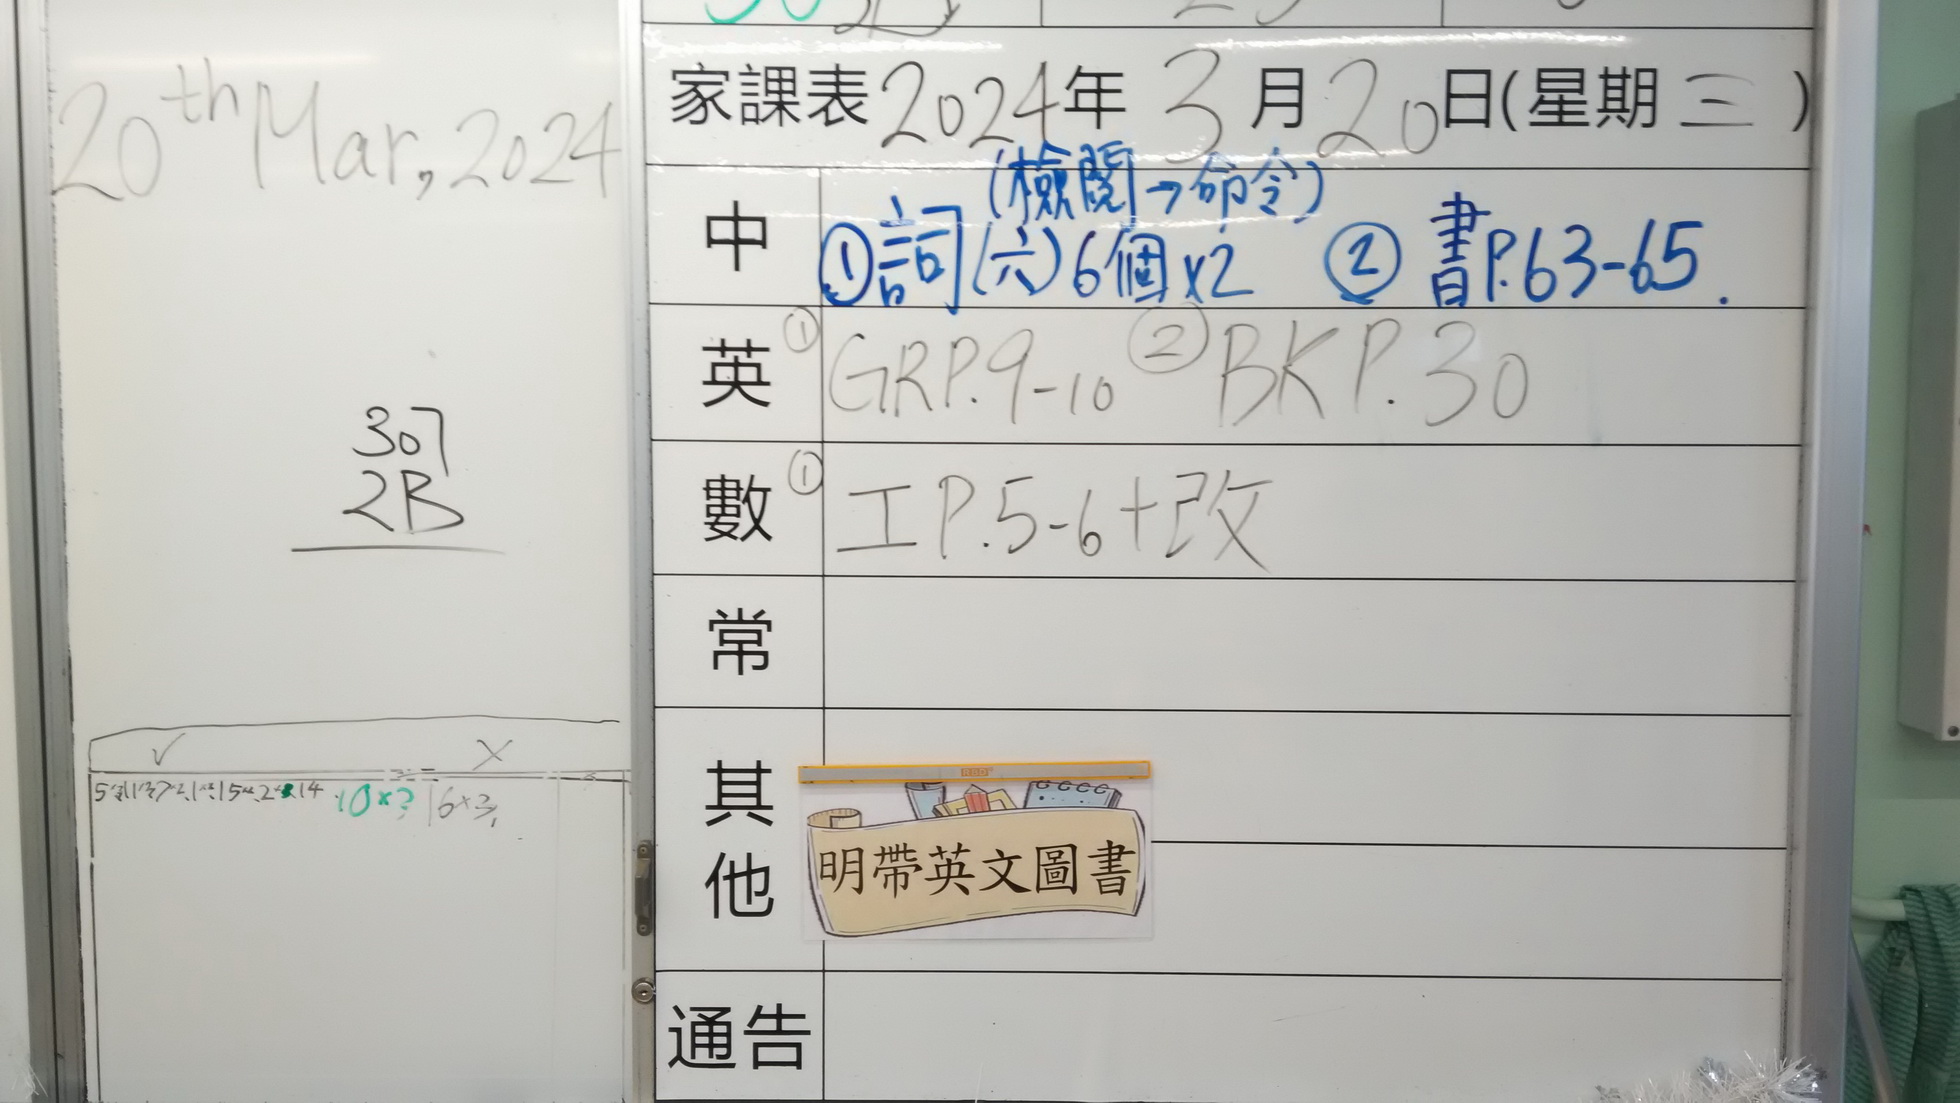 20th Mar, 2024
307
2B
✓ X
10x? 16x3,
家課表2024年3月20日(星期三)
(檢閱→命令)
中 ①詞(六)6個x2 ② 書P.63-65.
英 ①GRP.9-10 ②BK P.30
數 ①工P.5-6+改
常
其他
明帶英文圖書
通告